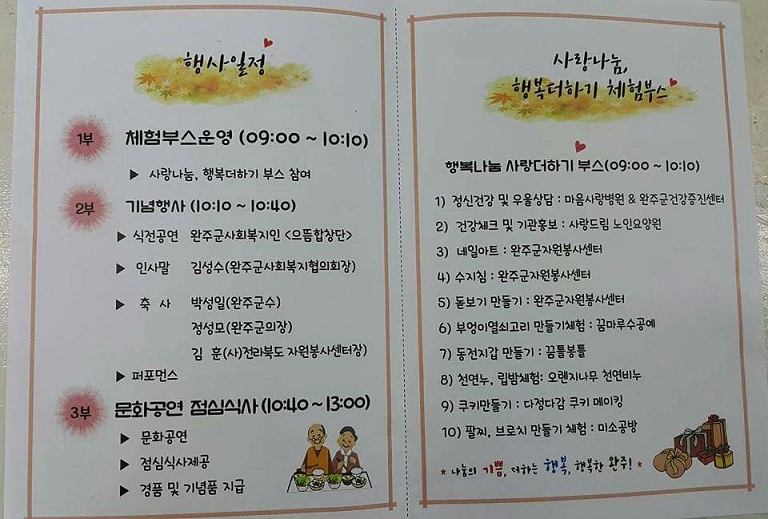 행사일정
1부 체험부스운영 (09:00 ~ 10:10)
▶ 사랑나눔, 행복더하기 부스 참여
2부 기념행사 (10:10 ~ 10:40)
▶ 식전공연 완주군사회복지인 <으뜸합창단>
▶ 인사말 김성수(완주군사회복지협의회장)
▶ 축 사 박성일(완주군수)
정성모(완주군의장)
김 훈(사)전라북도 자원봉사센터장)
▶ 퍼포먼스
3부 문화공연 점심식사 (10:40 ~ 13:00)
▶ 문화공연
▶ 점심식사제공
▶ 경품 및 기념품 지급
사랑나눔,
행복더하기 체험부스
행복나눔 사랑더하기 부스(09:00 ~ 10:10)
1) 정신건강 및 우울상담 : 마음사랑병원 & 완주군건강증진센터
2) 건강체크 및 기관홍보 : 사랑드림 노인요양원
3) 네일아트 : 완주군자원봉사센터
4) 수지침 : 완주군자원봉사센터
5) 돋보기 만들기 : 완주군자원봉사센터
6) 부엉이열쇠고리 만들기체험 : 꿈마루수공예
7) 동전지갑 만들기 : 꿈틀봉틀
8) 천연누, 립밤체험: 오렌지나무 천연비누
9) 쿠키만들기 : 다정다감 쿠키 메이킹
10) 팔찌, 브로치 만들기 체험 : 미소공방
* 나눔의 기쁨, 더하는 행복, 행복한 완주! *